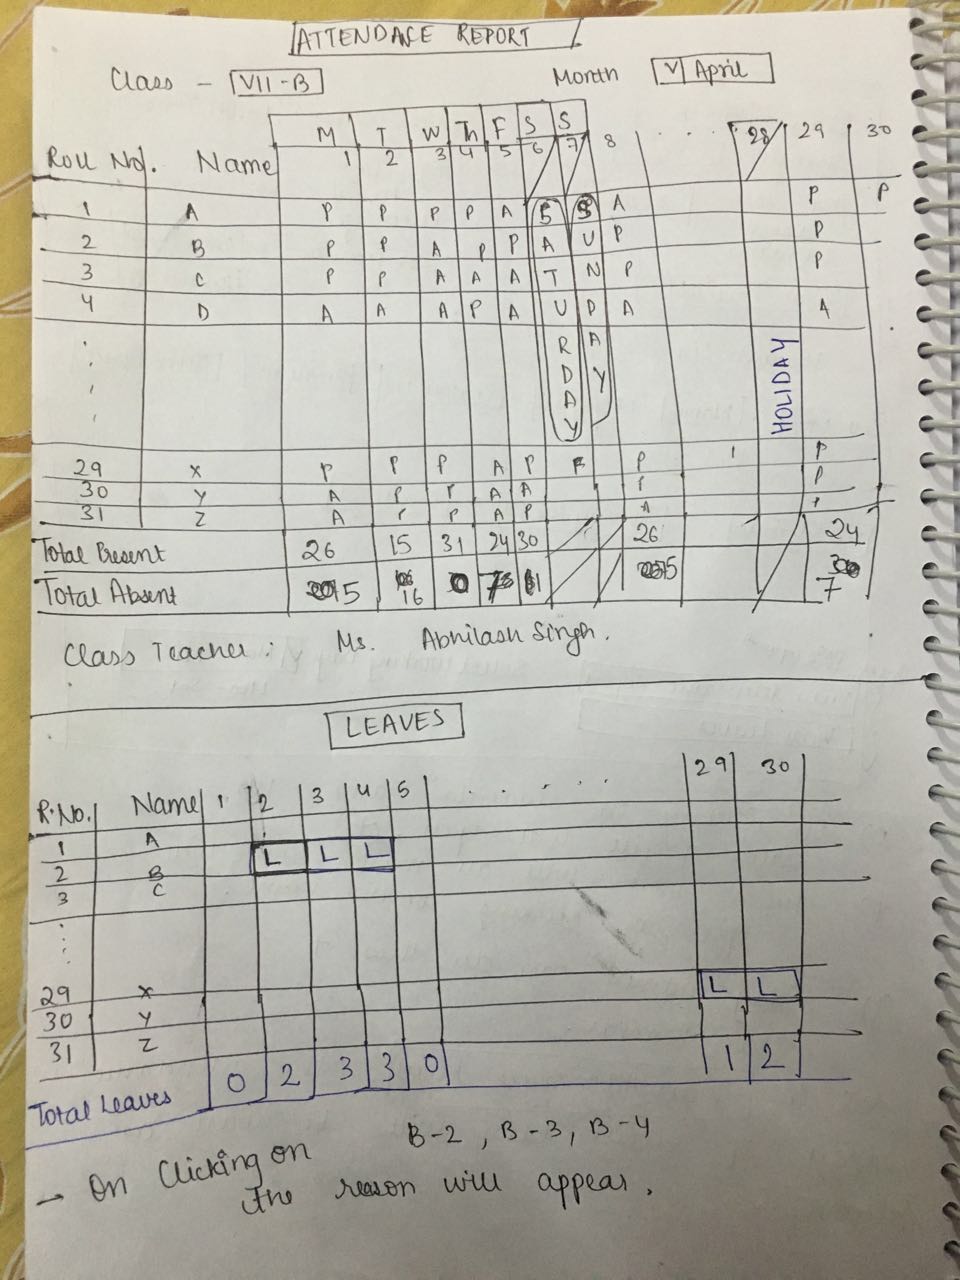 ATTENDANCE REPORT
Class - VII-B Month V April
M T W Th F S S
Roll No. Name 1 2 3 4 5 6 7 8 . . . 28 29 30
1 A P P P P A S S A P P
2 B P P A P P A U P P
3 C P P A A A T N P P
4 D A A A P A U D A A
R A
D Y
A
Y
HOLIDAY
29 X P P P A P P P
30 Y A P P A A P P
31 Z A P P A P A
Total Present 26 15 31 24 30 26 24
Total Absent 5 16 0 7 1 5 7
Class Teacher : Ms. Abhilash Singh.
LEAVES
R.No. Name 1 2 3 4 5 . . . . 29 30
1 A
2 B L L L
3 C
29 X L L
30 Y
31 Z
Total Leaves 0 2 3 3 0 1 2
→ On Clicking on B-2, B-3, B-4
the reason will appear.